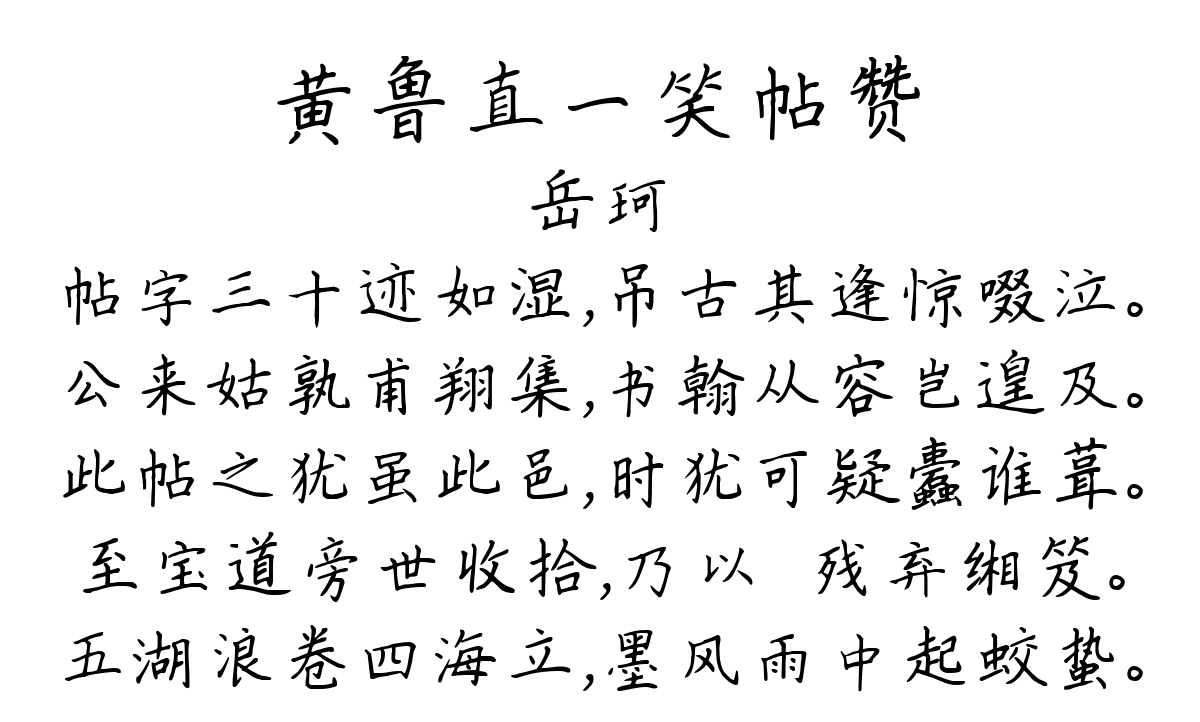 黄鲁直一笑帖赞
岳珂
帖字三十迹如湿,吊古其逢惊啜泣。
公来姑孰甫翔集,书翰从容岂遑及。
此帖之犹虽此邑,时犹可疑蠹谁葺。
至宝道旁世收拾,乃以 残弃缃笈。
五湖浪卷四海立,墨风雨中起蛟蛰。